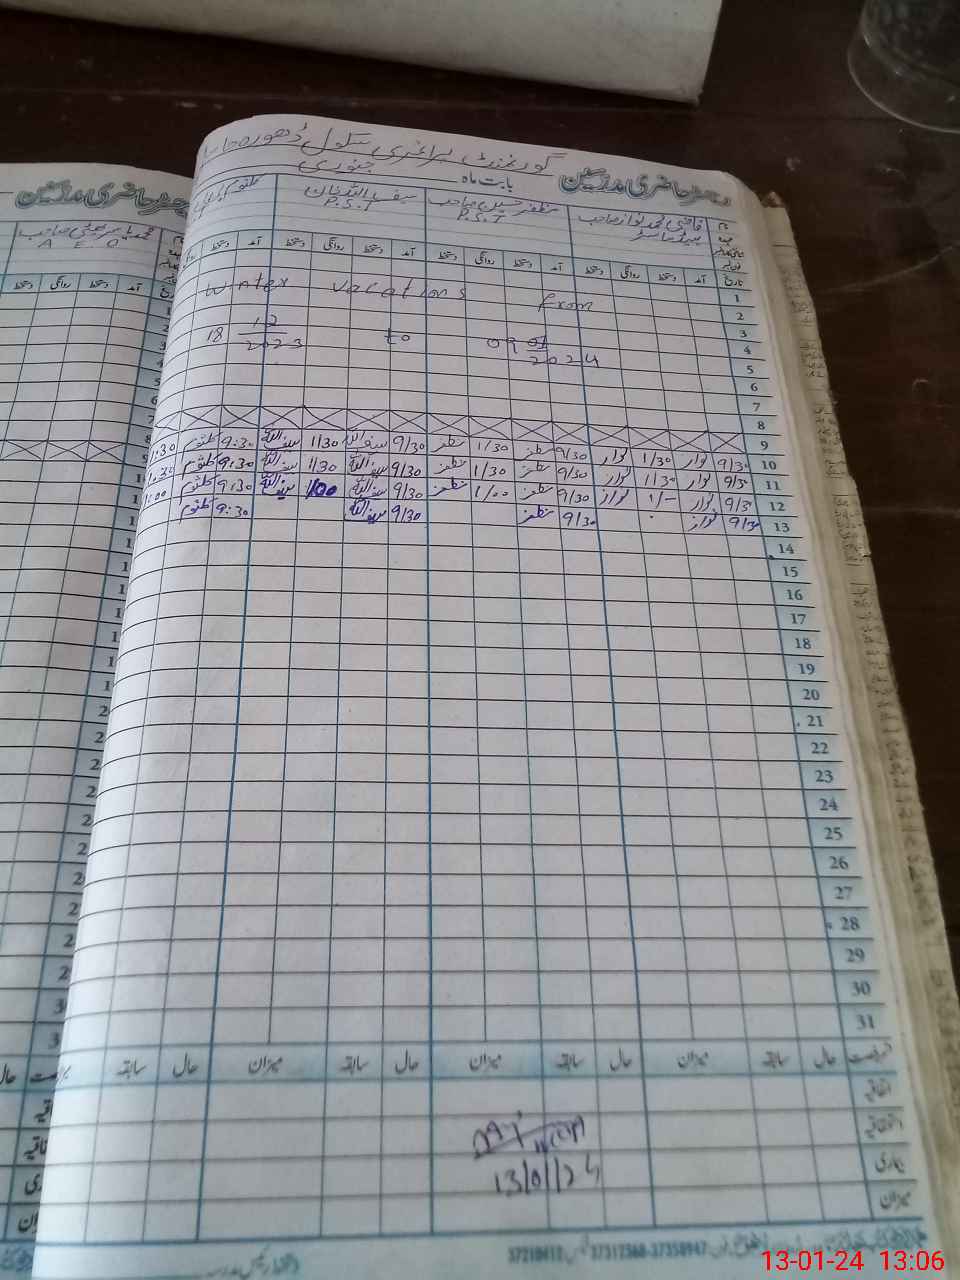 گورنمنٹ پرائمری سکول ڈھورہ
رجسٹر حاضری مدرسین بابت ماہ جنوری
رجسٹر حاضری مدرسین
نام قاضی محمد نواز صاحب مظفر حسین صاحب سیف اللہ خان کلثوم
ہیڈ ماسٹر P.S.T P.S.T
محمد یاسر علی صاحب
A E O
تاریخ آمد دستخط روانگی دستخط آمد دستخط روانگی دستخط آمد دستخط روانگی دستخط
1
2
3
4
5
6
7
8
Winter vacations From
18 12 2023 to 09 01 2024
9
10 9/30 نواز 1/30 نواز 9/30 مظفر 1/30 مظفر 9/30 سیف اللہ 1/30 سیف اللہ 9:30 کلثوم 1:30
11 9/30 نواز 1/30 نواز 9/30 مظفر 1/30 مظفر 9/30 سیف اللہ 1/30 سیف اللہ 9:30 کلثوم 1:30
12 9/30 نواز 1/- نواز 9/30 مظفر 1/00 مظفر 9/30 سیف اللہ 1/00 سیف اللہ 9:30 کلثوم 1:00
13 9/30 نواز 9/30 مظفر 9/30 سیف اللہ 9:30 کلثوم
14
15
16
17
18
19
20
21
22
23
24
25
26
27
28
29
30
31
رخصت حال سابقہ میزان حال سابقہ میزان حال سابقہ میزان حال سابقہ
اتفاقیہ
استحقاقیہ
بیماری
میزان
13/01/24
دستخط رئیس مدرسہ
37210412 37312368-37350947
13-01-24 13:06